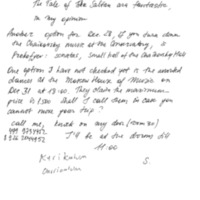 The Tale of Tsar Saltan are fantastic,
in my opinion
Another option for Dec 28, if you turn down
the Tchaikovsky music at the Conservatory, is
Prokofiev: sonatas, Small hall of the
One option I have not checked yet is the
dances at the Moscow House of Music on
Dec 31 at 19:00. They claim the maximum
price is 1500 Shall I call them in case you
cannot more your trip?
call me, knock on my door (room 30)
I'll be at the dorms till
11:00
Karikulum
Curriculum
S.